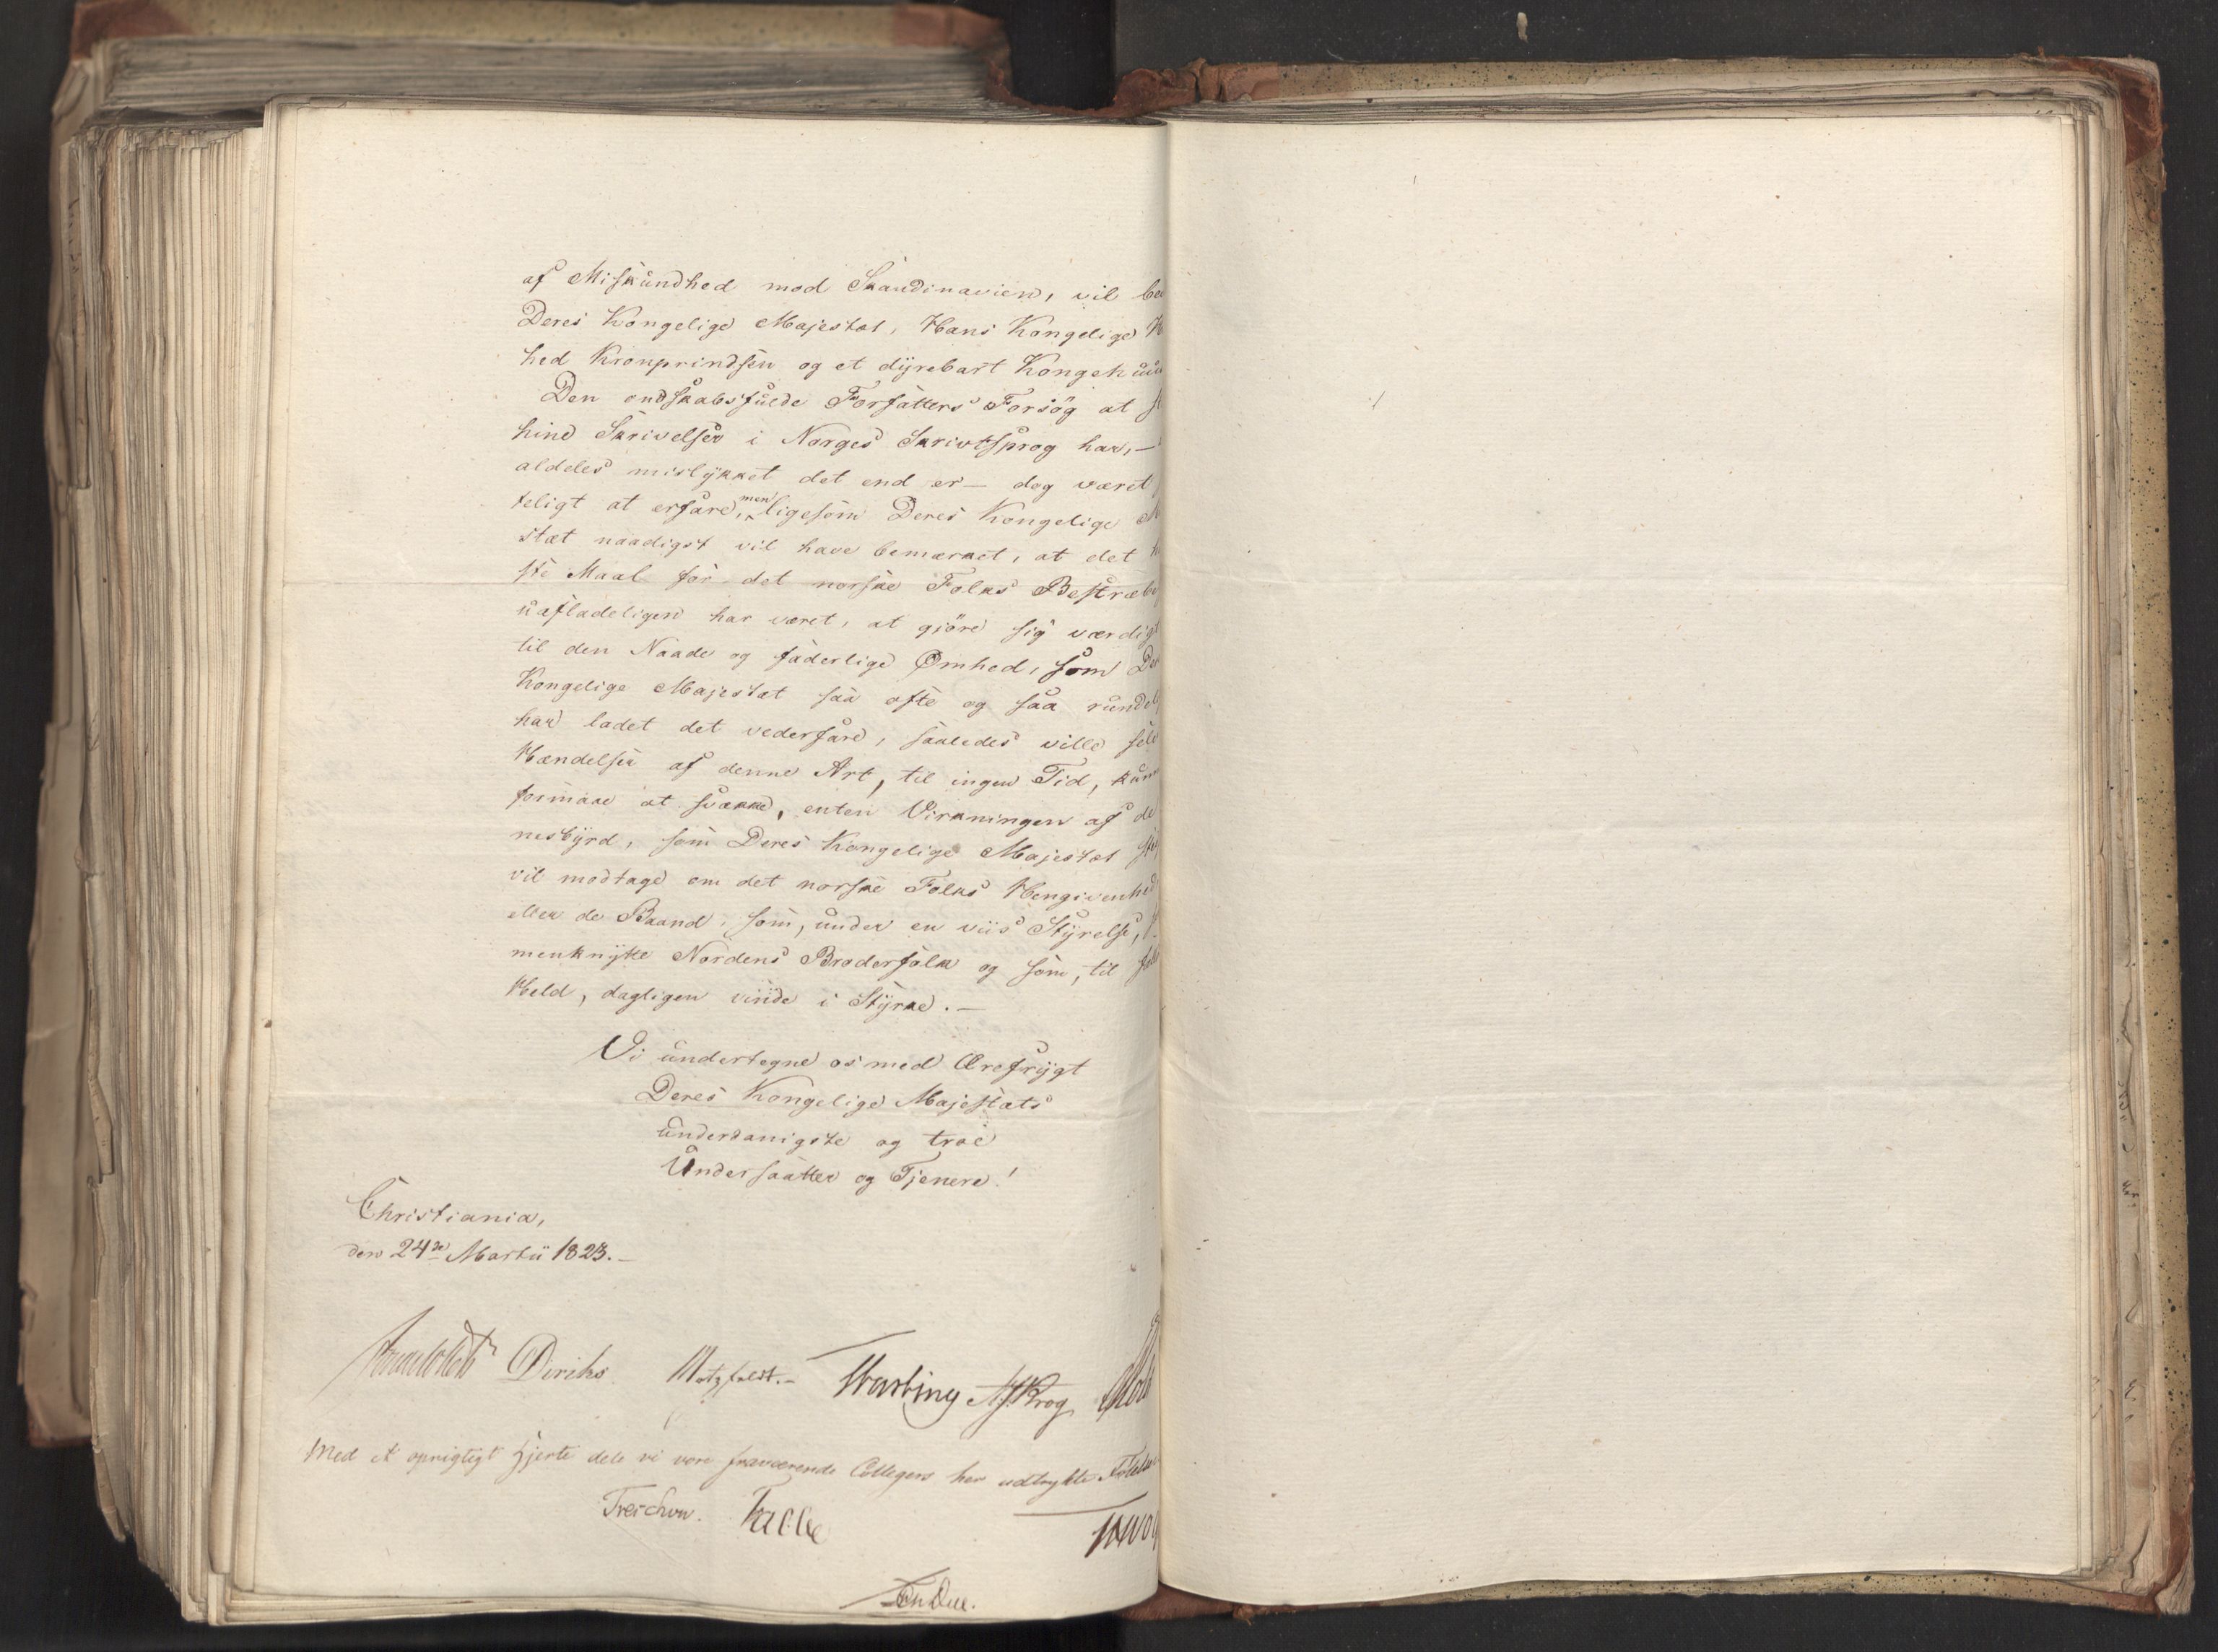 af Miskundhed mod Skandinavien, vil be
Deres Kongelige Majestæt, Hans Kongelige H
hed Kronprindsen og et dyrebart Kongehuu
Den ondskabsfulde Forfatters Forsög at
hine Skrivelser i Norges Skrivtsprog har, —
aldeles mislykket det end er — dog været
teligt at erfare, men ligesom Deres Kongelige M
stæt naadigst vil have bemærket, at det h
ste Maal for det norske Folks Bestræbe
uafladeligen har været, at gjöre sig værdigt
til den Naade og faderlige Ømhed, som De
Kongelige Majestæt saa ofte og saa rundel
har ladet det vederfare, saaledes ville
Hændelser af denne Art, til ingen Tid, kun
formaae at svække, enten Virkningen af de
nesbyrd, som Deres Kongelige Majestæt
vil modtage om det norske Folks Hengivenhed
eller de Baand, som, under en viis Styrelse,
menknytte Nordens Broderfolk og som, til
Held, dagligen vinde i Styrke. —
Vi undertegne os med Ærefrygt
Deres Kongelige Majestæts
underdanigste og troe
Undersaatter og Tjenere!
Christiania,
den 24de Martii 1823. —
Diriks Motzfeldt. — Krog
Med et oprigtigt Hjerte dele vi vore fraværende Collegers her udtrykte Følelser
Treschow. Falbe
Due.